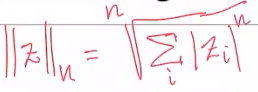 ||z||_n = \sqrt[n]{\sum_i |z_i|^n}